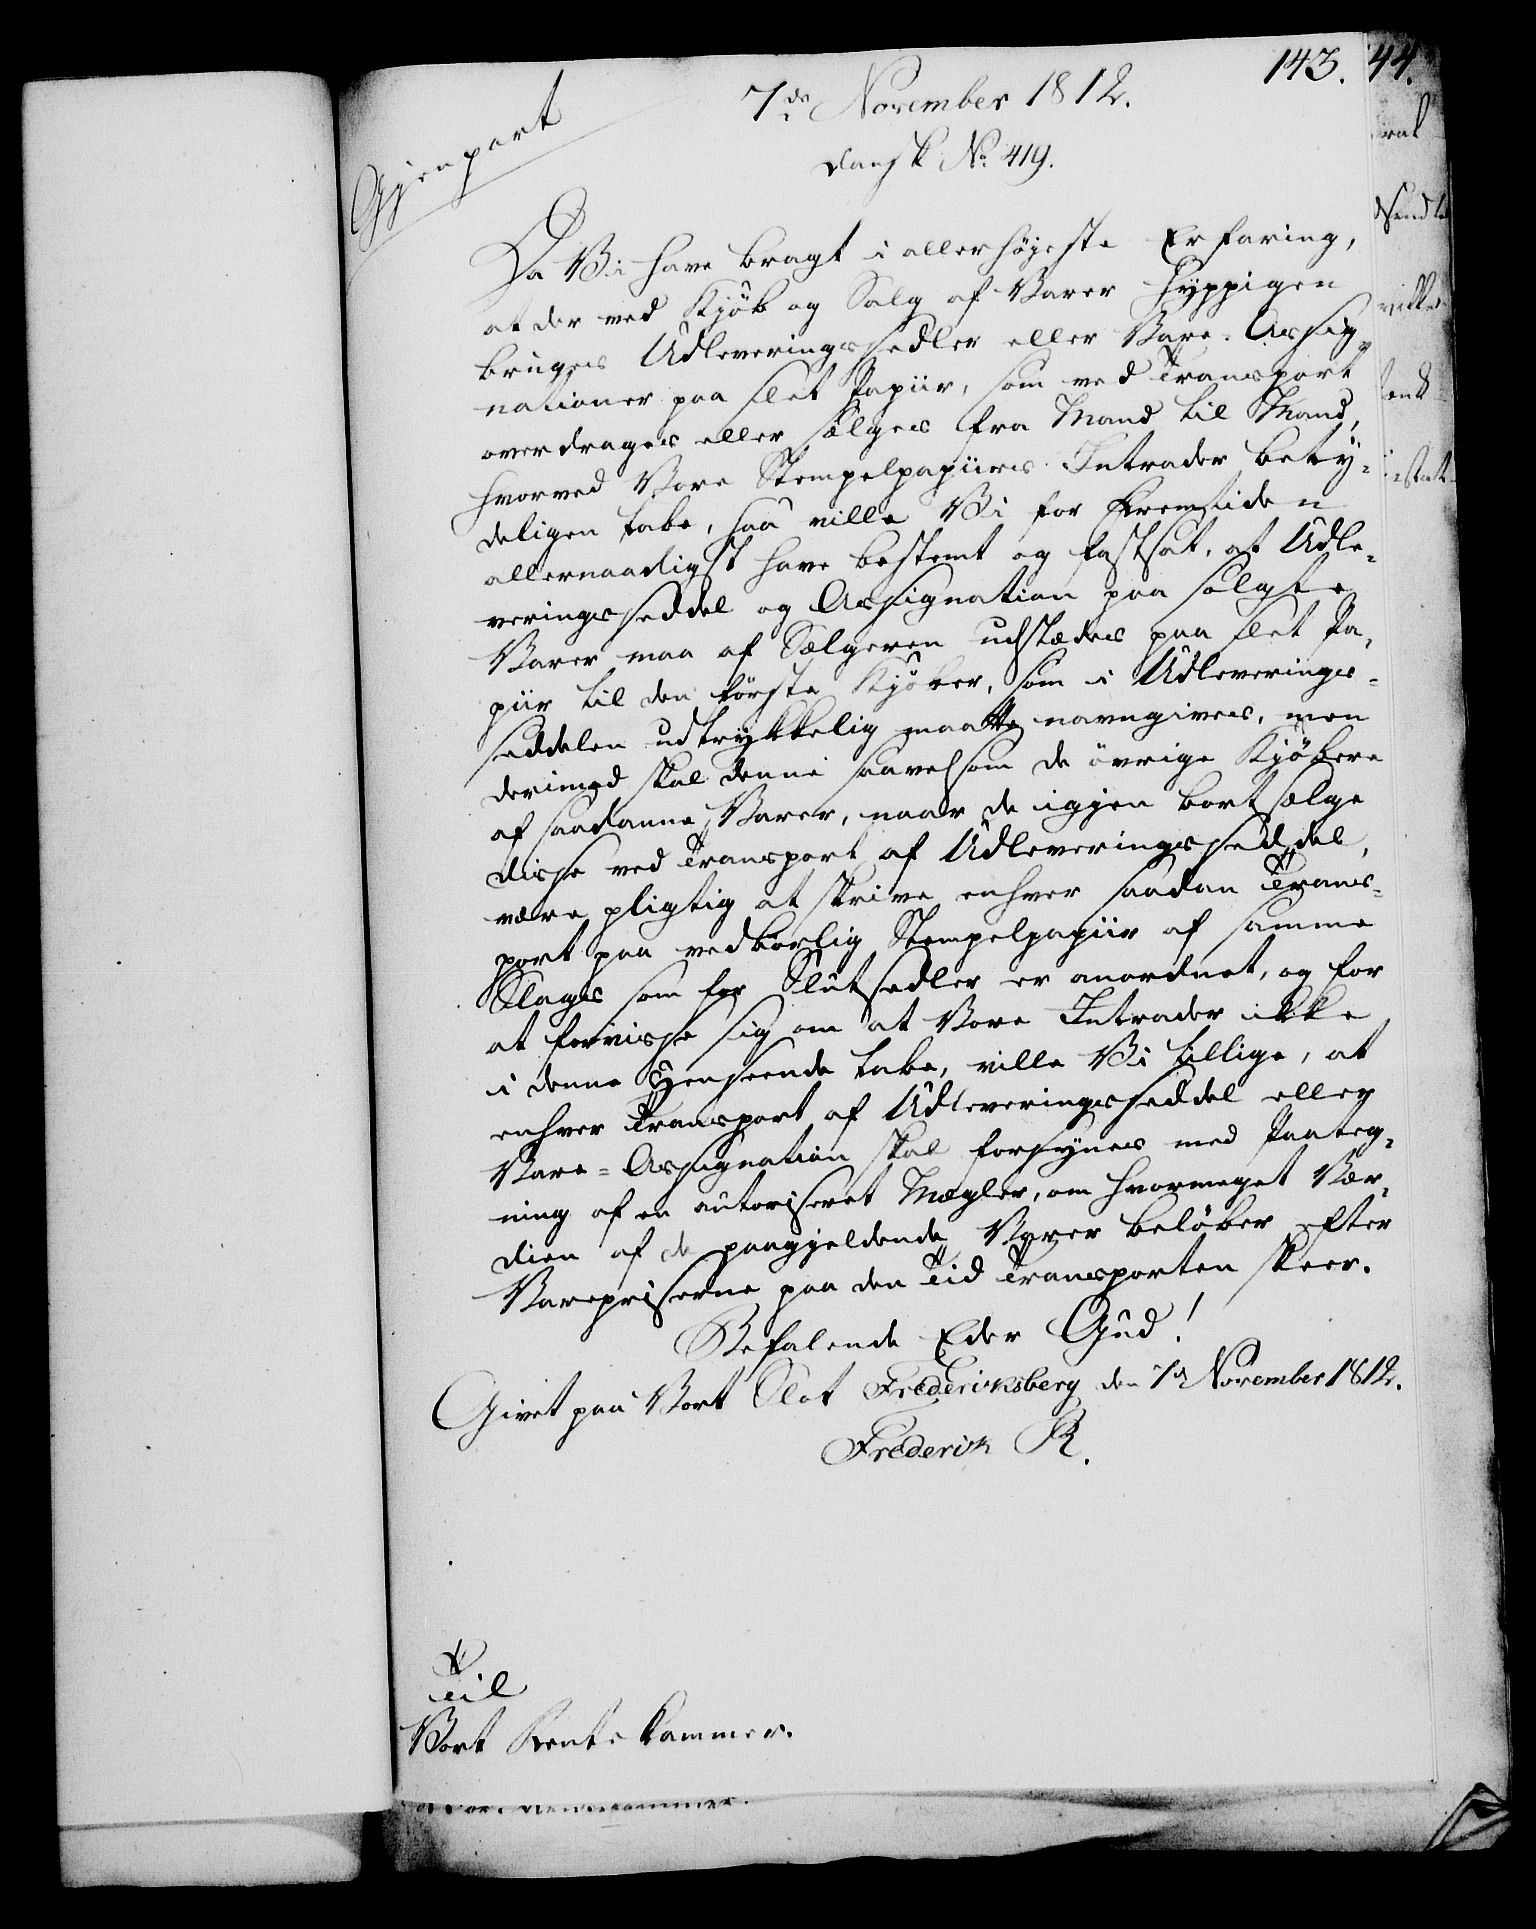 143. 44.
7de November 1812.
Gjenpart
dansk No 419.
Da Vi have bragt i allerhöjeste Erfaring,
at der ved Kjöb og Salg af Varer hyppigen
bruges Udleveringssedler eller Vare-Assig-
nationer paa slet Papiir, som ved Transport
overdrages eller sælges fra Mand til Mand,
hvorved Vore Stempelpapiirs Intrader bety-
deligen tabe, saa ville Vi for Fremtiden
allernaadigst have bestemt og fastsat, at Udle-
veringsseddel og Assignation paa solgte
Varer maa af Sælgeren udstædes paa slet Pa-
piir til den förste Kjöber, som i Udleverings-
seddelen udtrykkelig maatte navngives, men
derimod skal denne saavelsom de övrige Kjöbere
af saadanne Varer, naar de igjen bortsælge
disse ved Transport af Udleveringsseddel,
være pligtig at skrive enhver saadan Trans-
port paa vedbörlig Stempelpapiir af samme
Slags som for Slutsedler er anordnet, og for
at forvisse sig om at Vore Intrader ikke
i denne Henseende tabe, ville Vi tillige, at
enhver Transport af Udleveringsseddel eller
Vare-Assignation skal forsynes med Paateg-
ning af en autoriseret Mægler, om hvormeget Vær-
dien af de paagjeldende Varer belöber efter
Varepriserne paa den Tid Transporten skeer.
Befalende Eder Gud!
Givet paa Vort Slot Frederiksberg den 7de November 1812.
Frederik R.
Til
Vort Rentekammer.